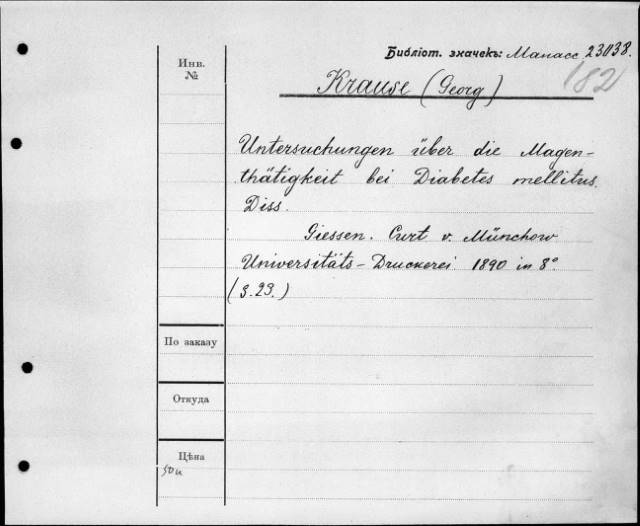 Библіот. значекъ: Манасс 23038.
182
Инв.
№
Krause (Georg)
Untersuchungen über die Magen-
thätigkeit bei Diabetes mellitus.
Diss.
Giessen. Curt v. Münchow
Universitäts-Druckerei 1890 in 8°.
(S. 23.)
По заказу
Откуда
Цѣна